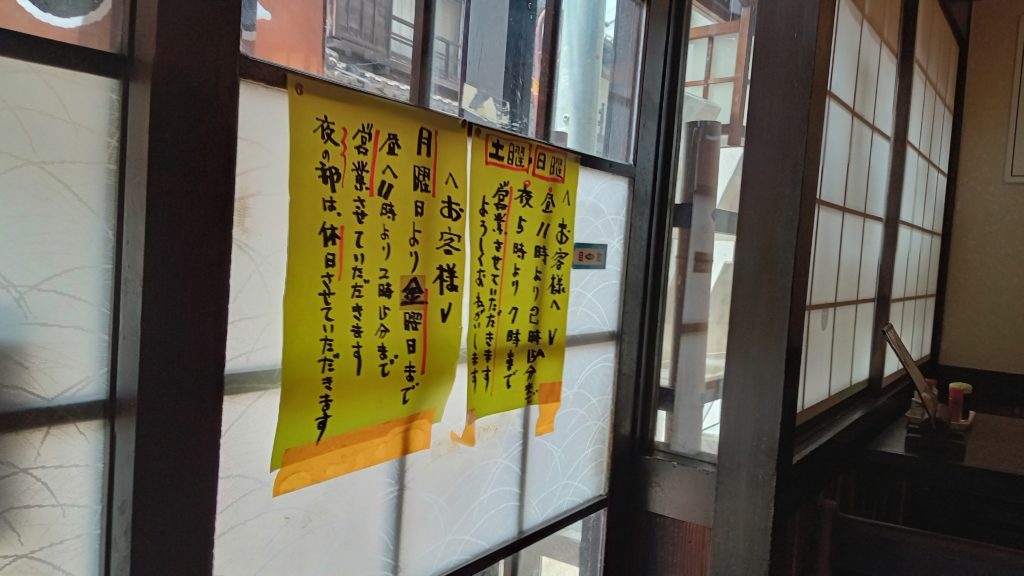 土曜 日曜
＜お客様へ＞
昼11時より2時15分まで
夜5時より7時まで
営業させていただきます
ようしくお ねがいします
＜お客様＞
月曜日より金曜日まで
昼へ11時より2時15分まで
営業させていただきます
夜の部は、休日させていただきます